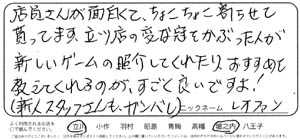 店員さんが面白くて、ちょこちょこ寄らせて
貰ってます。立川店の変な冠をかぶった人が
新しいゲームの紹介してくれたり、おすすめを
教えてくれるのが、すごく良いですよ!
(新人スタッフさんも、ガンバレ) ニックネーム レオファン
立川 小作 羽村 昭島 青梅 高幡 堀之内 八王子